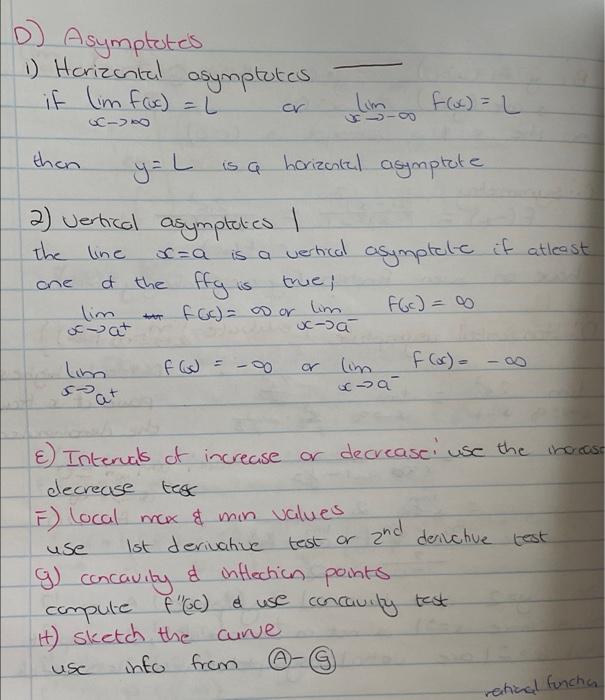 D) Asymptotes
1) Horizontal asymptotes
if lim f(x) = L or lim f(x) = L
x->∞ x->-∞
then y=L is a horizontal asymptote
2) vertical asymptotes |
the line x=a is a vertical asymptote if atleast
one of the ffg is true;
lim f(x) = ∞ or lim f(x) = ∞
x->a+ x->a-
lim f(x) = -∞ or lim f(x) = -∞
x->a+ x->a-
E) Intervals of increase or decrease: use the increase
decrease test
F) local max & min values
use 1st derivative test or 2nd derivative test
g) concavity & inflection points
compute f"(x) & use concavity test
H) sketch the curve
use info from Ⓐ-Ⓖ
rational function